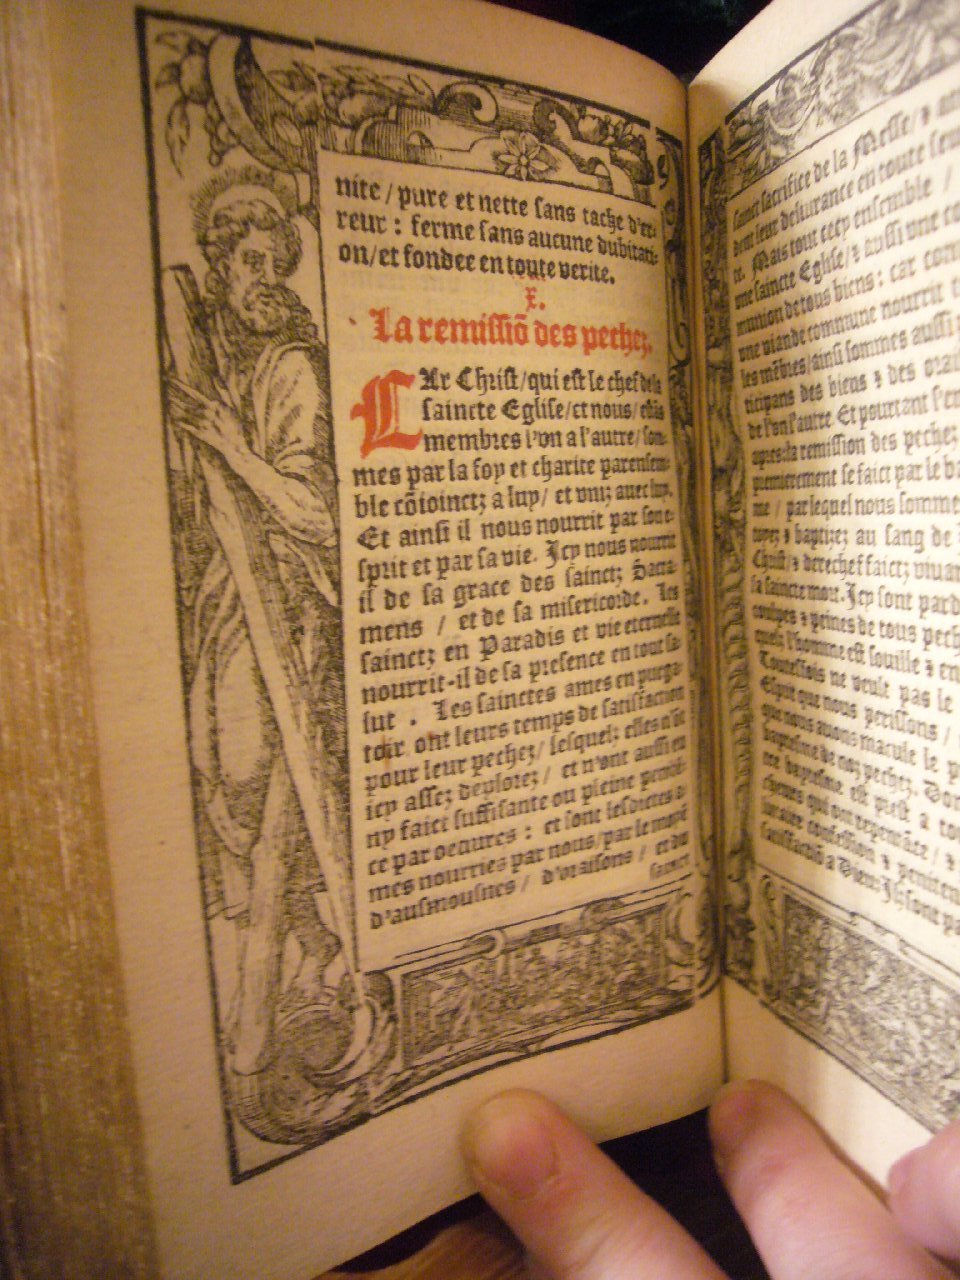 nite / pure et nette sans tache d'er-
reur : ferme sans aucune dubitati-
on / et fondee en toute verite.
X.
La remissiõ des pechez.
CAr Christ / qui est le chef de la
saincte Eglise / et nous / estãs
membres l'vn a l'autre / som-
mes par la foy et charite parensem-
ble cõioinctz a luy / et vniz auec luy.
Et ainsi il nous nourrit par son e-
sprit et par sa vie. Icy nous nourrit
il de sa grace des sainctz Sacra-
mens / et de sa misericorde. Les
sainctz en Paradis et vie eternelle
nourrit-il de sa presence en tout sa-
lut . Les sainctes ames en purga-
toir ont leurs temps de satisfaction
pour leur pechez / lesquelz elles n'õt
icy assez deplorez / et n'ont aussi eu
ny faict suffisante ou pleine penitẽ-
ce par oeuures : et sont lesdictes a-
mes nourries par nous / par le moyẽ
d'ausmousnes / d'oraisons / et du
sainct
sainct sacrifice de la Messe /
dent leur deliurance en toute
Mais tout cecy ensemble /
vne saincte Eglise / & aussi vne
munion de tous biens : car
vne viande commune nourrit
les mẽbres / ainsi sommes aussi
ticipans des biens & des
de l'on l'autre. Et pourtant
apres: la remission des pechez
premierement se faict par le
me / par lequel nous
& baptizez au sang de
Christ / & derechef faictz
sa saincte mort. Icy sont
coulpes & peines de tous
quelz l'homme est souille &
Toutesfois ne veult pas le
Esprit que nous perissons /
que nous auons macule le
baptesme de noz pechez.
baptesme est prest a
ceux qui ont repentãce / &
confession & peniten-
satisfactiõ a Dieu: Ilz sont